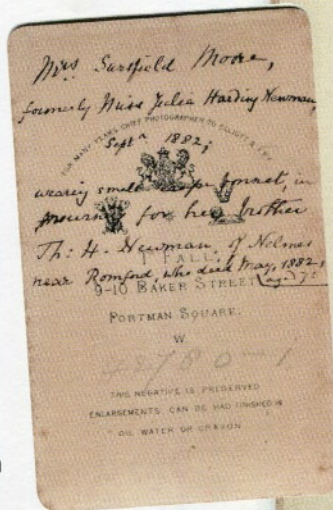 Mrs Sarsfield Moore,
formerly Miss Julia Harding Newman,
FOR MANY YEARS CHIEF PHOTOGRAPHER TO ELLIOTT & FRY
Septr 1882;
wearing small crape bonnet, in
mourning for her brother
Th: H. Newman, of Nelmes
T FALL,
near Romford, who died May, 1882,
9-10 BAKER STREET
PORTMAN SQUARE.
W
THIS NEGATIVE IS PRESERVED
ENLARGEMENTS CAN BE HAD FINISHED IN
OIL WATER OR CRAYON